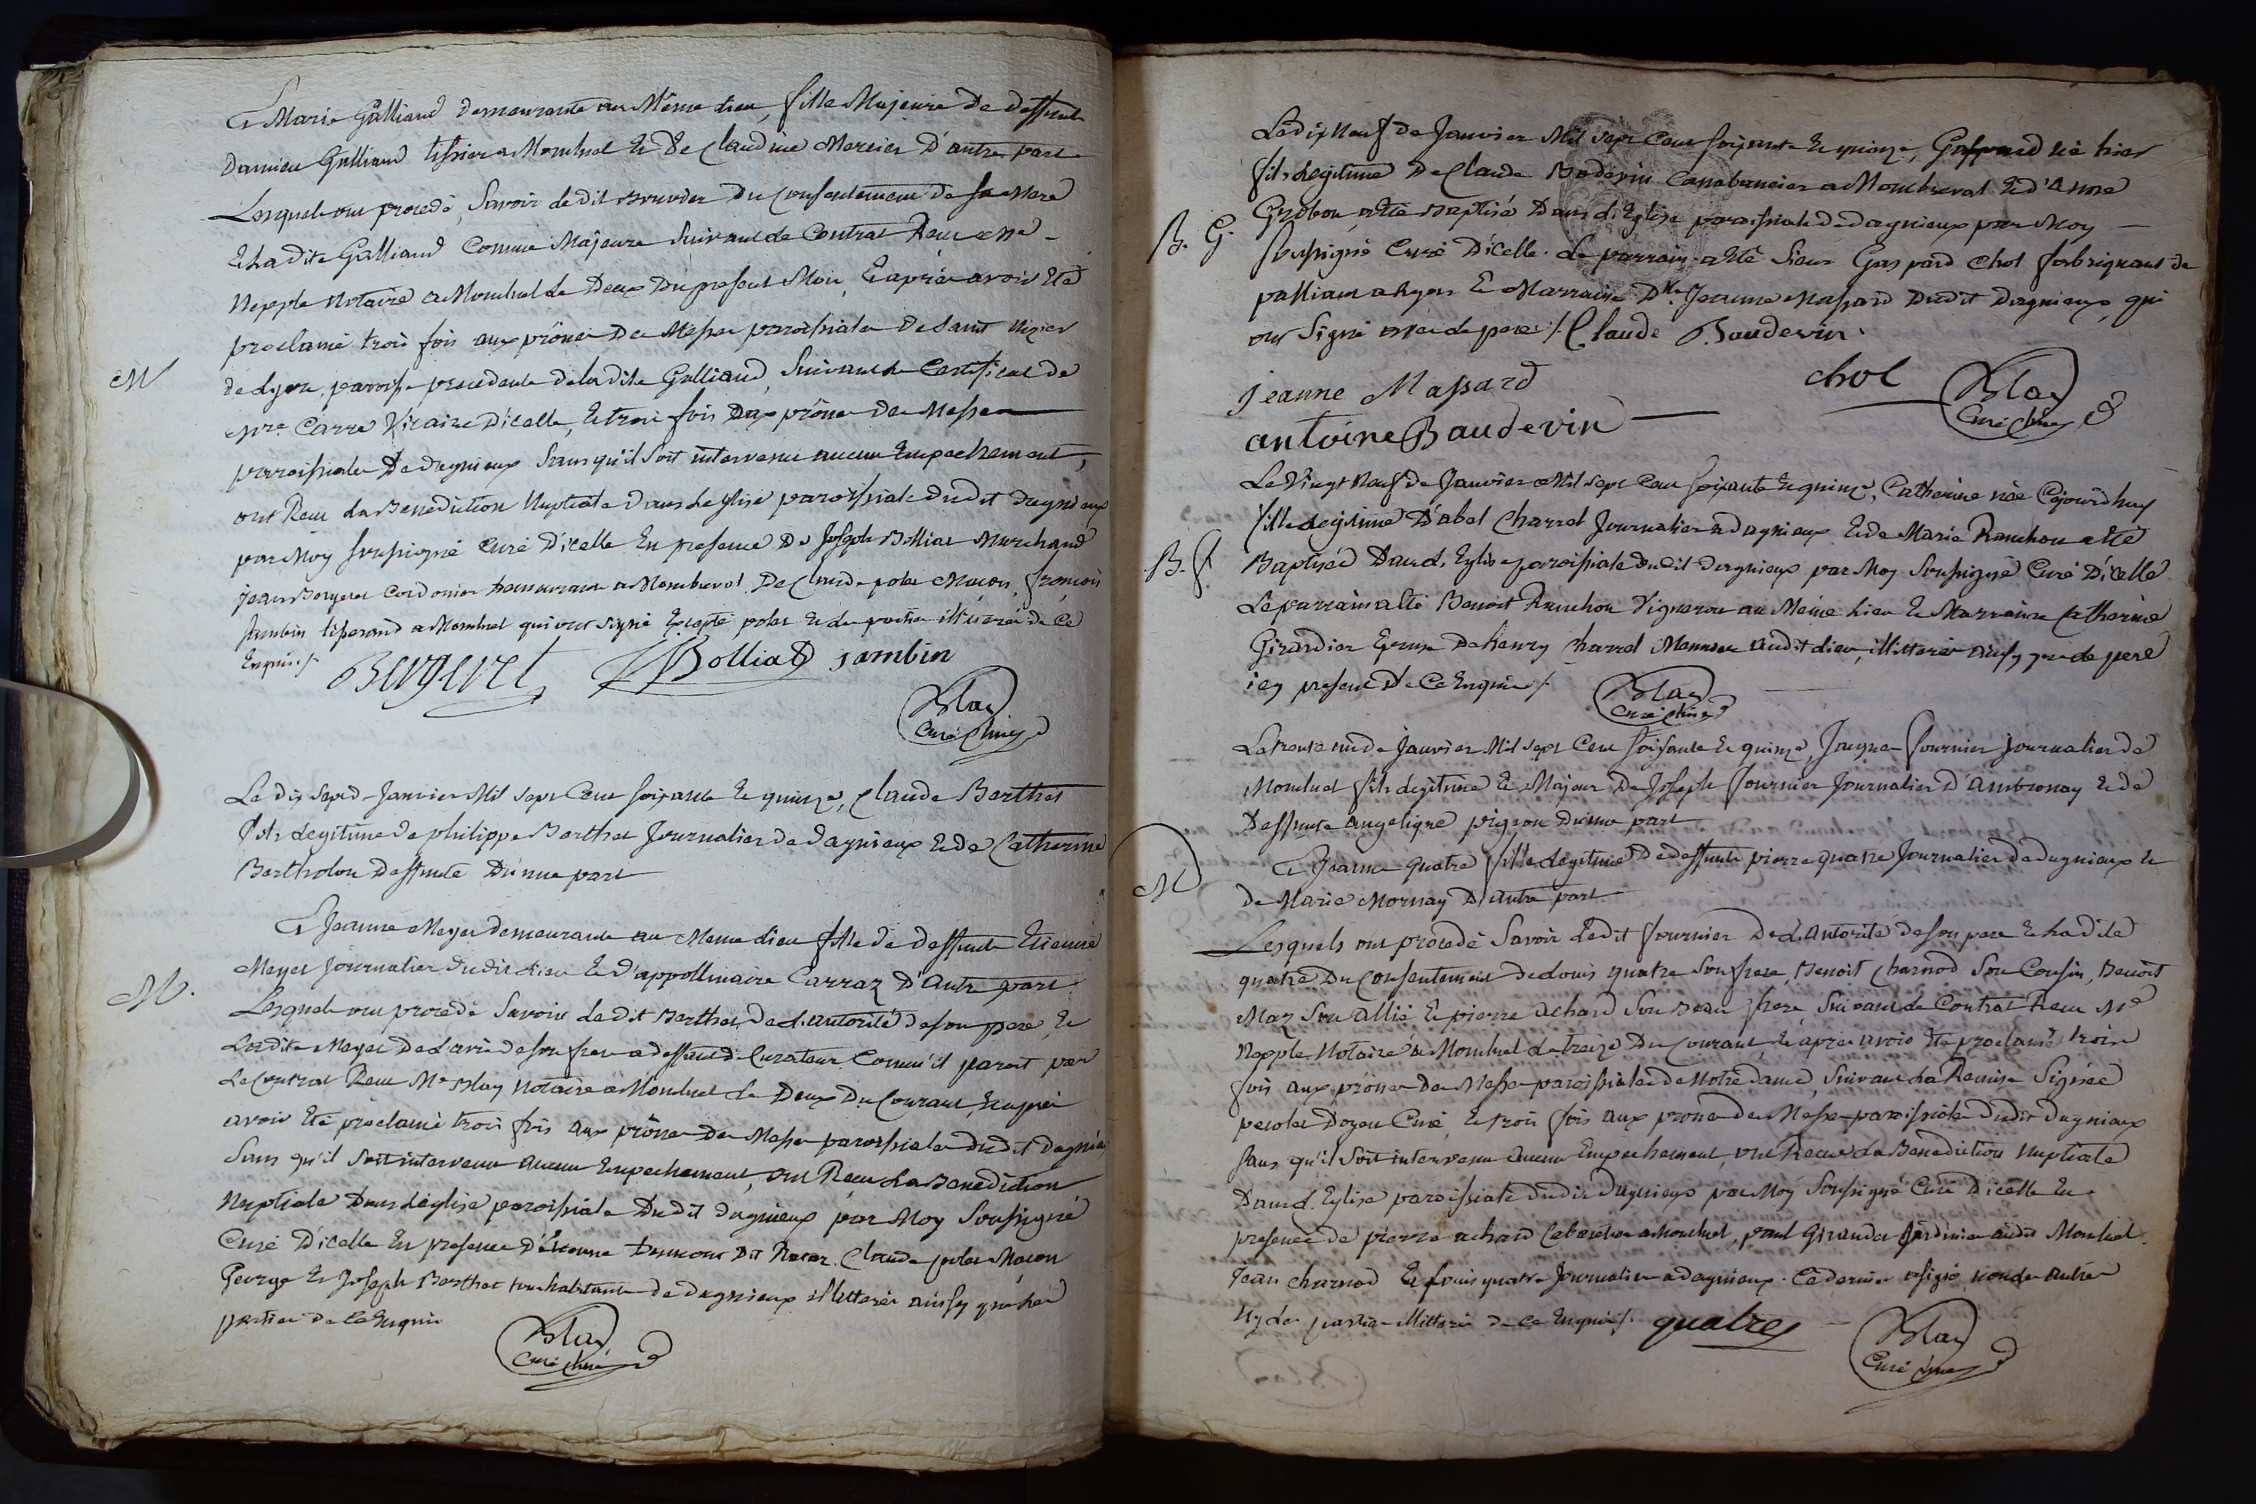 Et Marie Galliand demeurante au Même Lieu, fille Majeure De deffunt
Damien Galliand tissier a Montluel Et De Claudine Mercier D'autre part
Lesquels ont procedé, Savoir Le dit Bouvier Du Consentement de sa Mere
Et La Dite Galliand Comme Majeure Suivant Le Contrat Reçu Me
Nepple Notaire a Montluel Le Deux Du present Mois, Et après avoir Eté
proclamé trois fois aux prônes Des Messes paroissiales De Saint Nizier
de Lyon, paroisse precedente de la dite Galliand, Suivant Le Certificat de
M
Carre Vicaire D'icelle, Et trois fois aux prônes Des Messes
parroissiales De Dagnieux Sans qu'il Soit intervenu aucun Empechement,
ont Reçu La Benediction Nuptiale Dans L'eglise paroissiale dudit Dagnieux
par Moy Soussigné Curé D'icelle En presence De Joseph Bolliat Marchand
jean Bergeret Cordonier Demeurant a Montluel De Claude poles Maçon, françois
Jambin tisserand a Montluel qui ont Signé Excepté poles Et Les parties illiterées De Ce
Enquis ./.
Bergeret Bolliat jambin
Blay
Curé
Le dix Sept Janvier Mil Sept Cent Soixante Et quinze, Claude Berthet
fils Legitime de philippe Berthet Journalier de Dagnieux Et De Catherine
Bertholon Deffunte D'une part
Et Jeanne Meyer demeurante au Meme Lieu fille de deffunt Etienne
Meyer Journalier dudit Lieu Et d'appollinaire Carraz D'autre part
M.
Lesquels ont procedé Savoir Le dit Berthet, De L'autorité de son pere, Et
Ladite Meyer De L'avis de son frere a deffaut de Curateur Comm'il paroit par
Le Contrat Reçu Me Blay Notaire a Montluel Le Deux Du Courant, Et après
avoir Eté proclamé trois fois aux prônes Des Messes paroissiales dudit Dagnieux
Sans qu'il Soit intervenu aucun Empechement, ont Reçu La Benediction
Nuptiale Dans L'église paroissiale Dudit Dagnieux par Moy Soussigné
Curé D'icelle En presence D'Etienne Dit Claude poles Maçon
George Et Joseph Berthet tous habitants de Dagnieux illitterés ainsy que Les
parties De Ce Enquis
Blay
Curé
Le dix Neuf de Janvier Mil Sept Cent Soixante Et quinze, Gaspard né hier
fils Legitime De Claude Bodevin Cabaretier a Montluel Et D'anne
Guibou, a Eté Baptisé Dans L'Eglise paroissiale de Dagnieux par Moy
B. G.
Soussigné Curé D'icelle. Le parrain a Eté Sieur Gaspard Chol fabriquant de
a Lyon Et Marraine Dlle Jeanne Massard Dudit Dagnieux, qui
ont Signé avec Le pere ./. Claude Baudevin
jeanne Massard chol Blay
Curé
antoine Baudevin
Le Vingt Neuf De Janvier Mil Sept Cent Soixante Et quinze, Catherine née Cejourdhuy
fille Legitime D'abel Charrel Journalier a Dagnieux Et de Marie Ranchon a Eté
B. f.
Baptisée Dans L'Eglise paroissiale Dudit Dagnieux par Moy Soussigné Curé D'icelle
Le parrain a Eté Benoit Ranchon Vigneron au Meme Lieu Et Marraine Catherine
Girardier Epouse De henry Charrel Audit Lieu, illitterés ainsy que Le pere
icy present De Ce Enquis ./.
Blay
Curé
Le trente un de Janvier Mil Sept Cent Soixante Et quinze, Jaqque Fournier journalier de
Montluel fils Legitime Et Majeur De Joseph Fournier Journalier D'ambronay Et De
Deffunte angelique pigeon D'une part
Et Jeanne quatre fille Legitime De deffunt pierre quatre Journalier De Dagnieux Et
M
de Marie Mornay D'autre part
Lesquels ont procedé Savoir Ledit Fournier De L'autorité de Son pere Et La dite
quatre Du Consentement de Louis quatre Son frere, Benoit Charnod Son Cousin, Benoit
Maz Son allié Et pierre achard Son Beau frere, Suivant Le Contrat Reçu Me
Nepple, Notaire a Montluel Le treize Du Courant, Et après avoir Eté proclamé trois
fois aux prônes Des Messes paroissiales de Notre dame, Suivant La Remise Signée
Doyen Curé, Et trois fois aux prones Des Messes paroissiales dudit Dagnieux
Sans qu'il Soit intervenu aucun Empechement, ont Reçu La Benediction Nuptiale
Dans L'Eglise paroissiale dudit Dagnieux par Moy Soussigné Curé D'icelle En
presence de pierre achard Cabaretier a Montluel, paul Girandet Jardinier audit Montluel.
Jean charnod Et Louis quatre Journaliers a Dagnieux. Ce dernier a Signé, Non Les autres
Ny Les parties illitterés De Ce Enquis ./. quatre
Blay
Curé